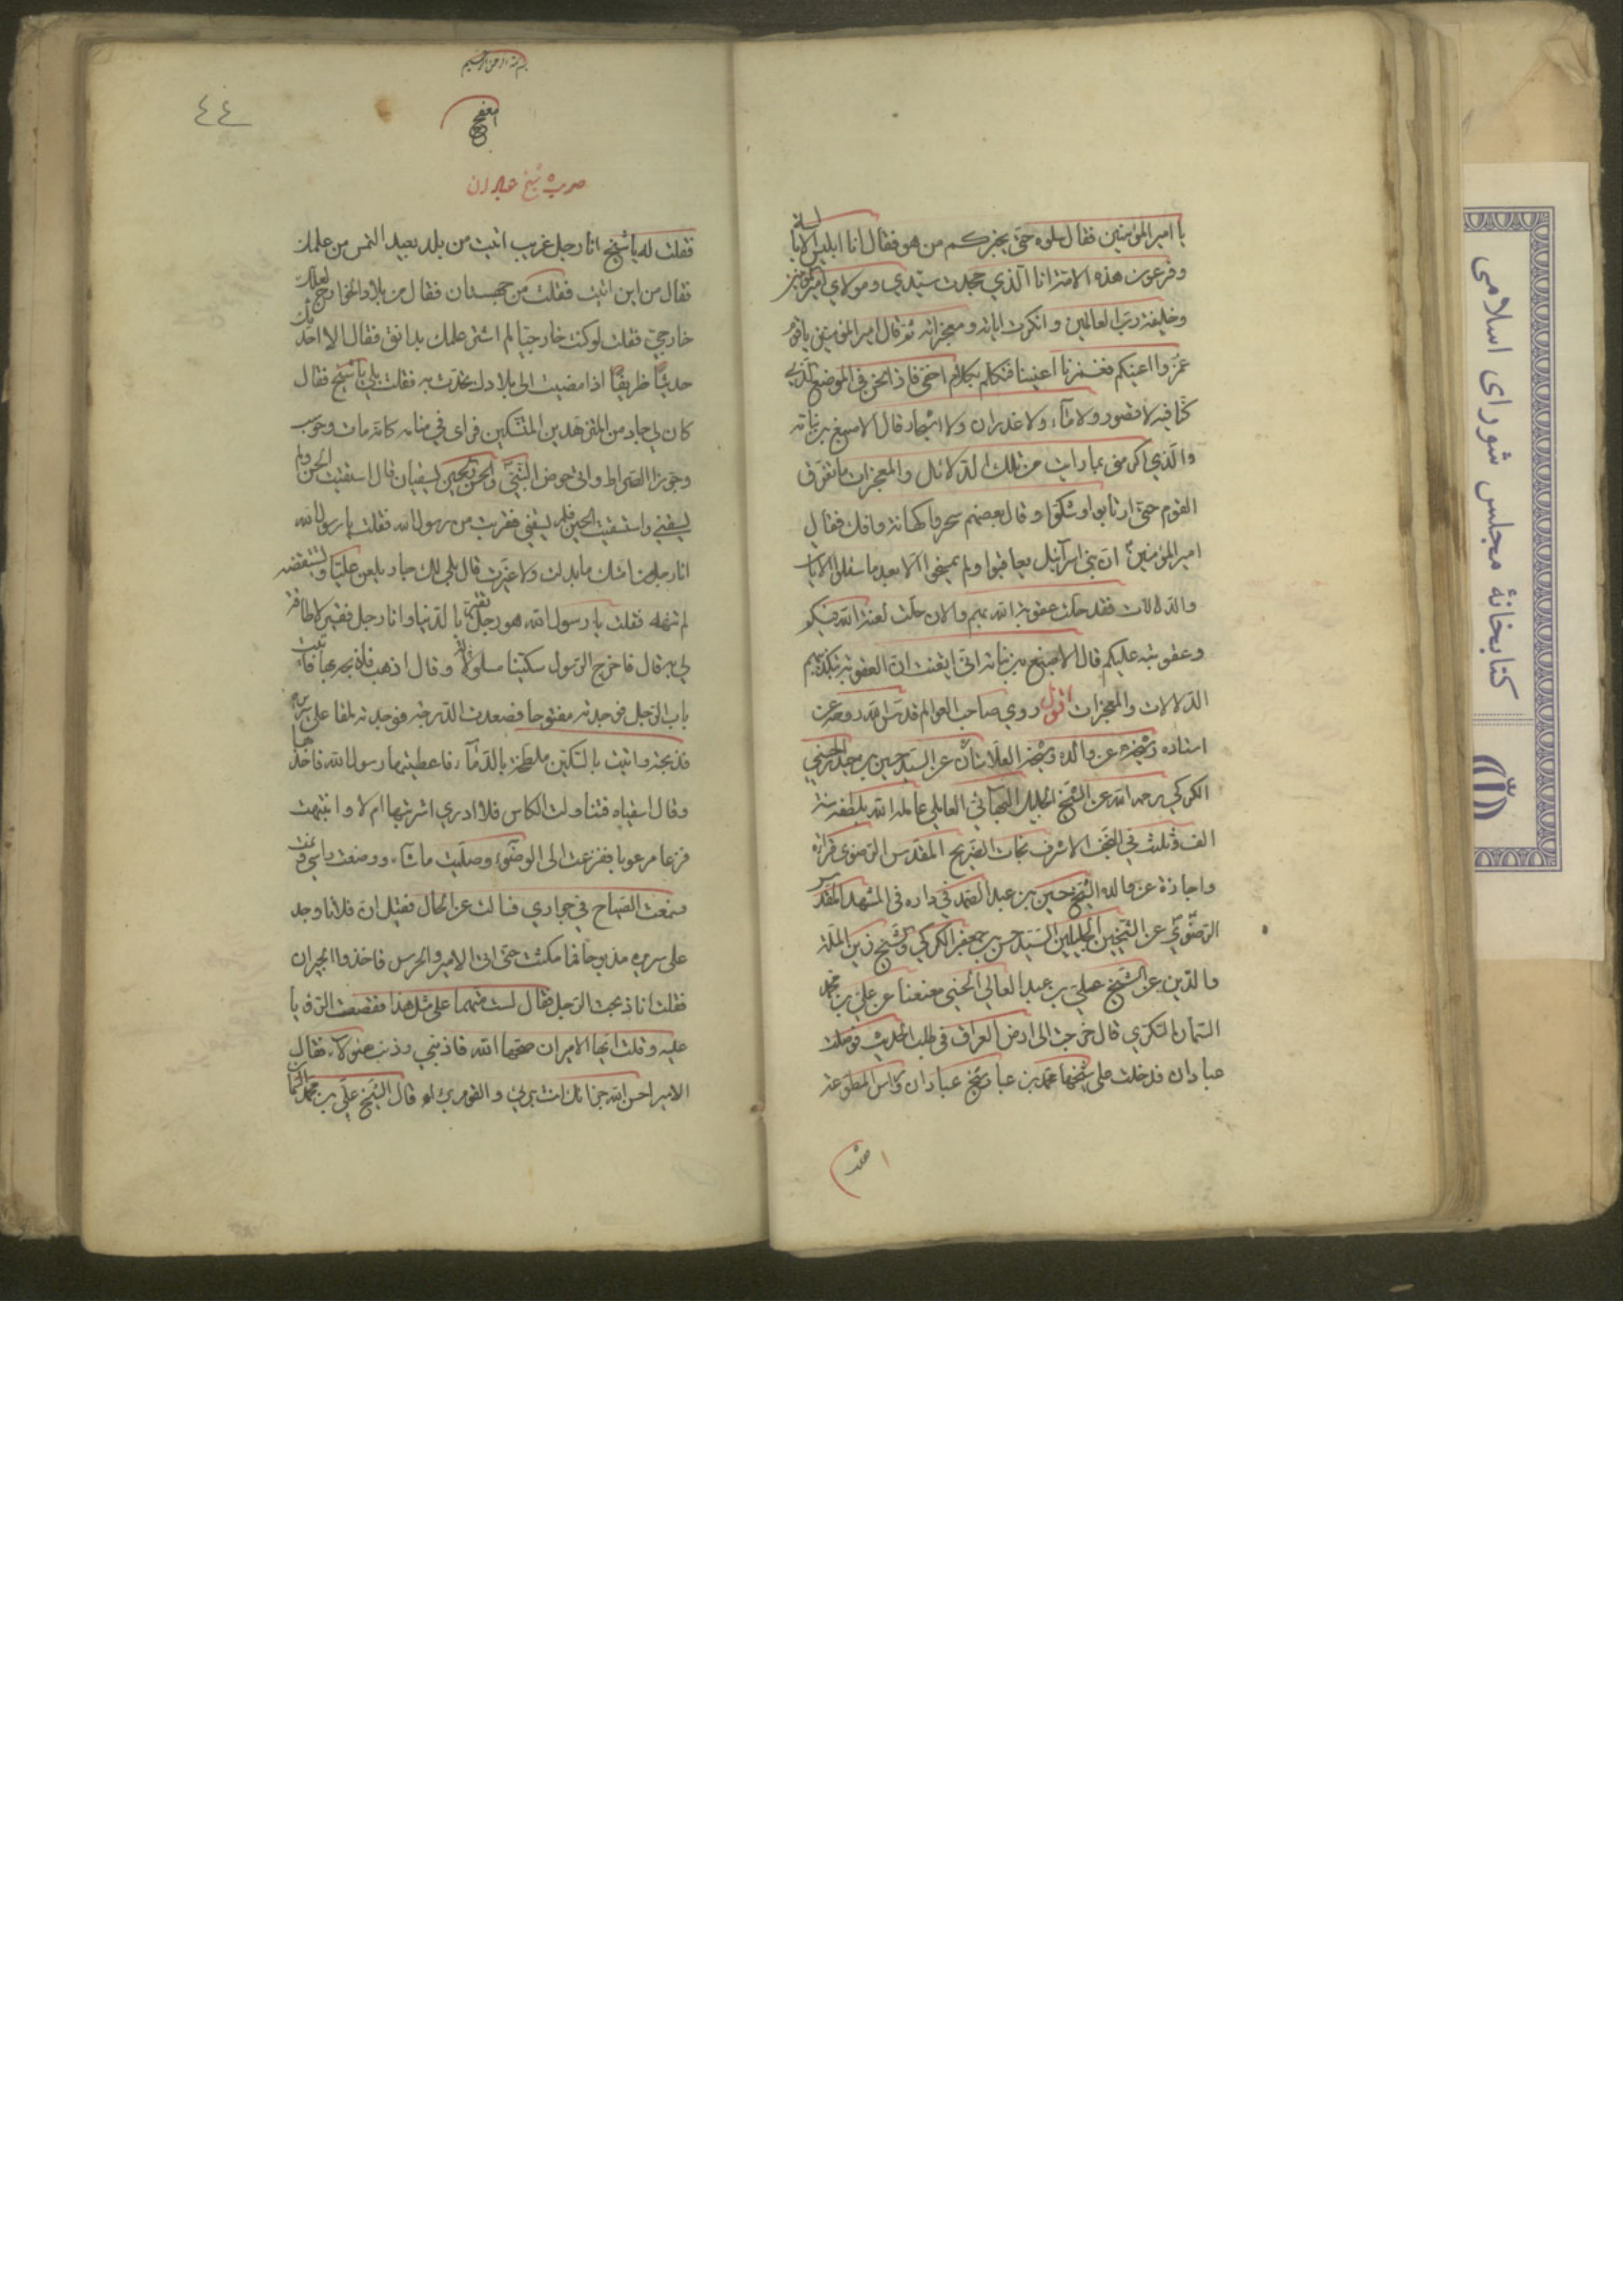 يا امير المؤمنين فقال سلوه حتى يخبركم من هو فقال انا ابليس الابالسة
وفرعون هذه الامة انا الذي جحدت سيدي ومولاي امير المؤمنين
وخليفة رب العالمين وانكرت اياته ومعجزاته ثم قال امير المؤمنين يا قوم
غمزوا اعينكم فغمزنا اعيننا فتكلم بكلام اخفى فاذا نحن في الموضع الذي
كنا فيه لا قصور ولا ماء ولا غدران ولا اشجار قال الاصبغ بن نباته
والذي اكرمنى بما رايت من تلك الدلائل والمعجزات ما تفرق
القوم حتى ارتابوا وشكوا وقال بعضهم سحر وكهانة وافك فقال
امير المؤمنين ان بني اسرآئيل لم يعاقبوا ولم يمسخوا الا بعد ما سئلوا الايات
والدلالات فقد حلت عقوبة الله بهم والان حلت لعنة الله فيكم
وعقوبته عليكم قال الاصبغ بن نباته اني ايقنت ان العقوبة بتكذيبهم
الدلالات والمعجزات اقول روي صاحب العوالم قدس الله روحه عن
استاده وشيخه عن والده وشيخه العلامتان عن السيد حسين بن حيدر الحسيني
الكركي رحمه الله عن الشيخ الجليل البهائي العاملي عامله الله بلطفه سنة
الف وثلث في النجف الاشرف تجاه الضريح المقدس الرضوى قرائة
واجازة عن والده الشيخ حسين بن عبد الصمد في داره في المشهد المقدس
الرضوي عن الشيخين الجليلين السيد حسن بن جعفر الكركي والشيخ زين الملة
والدين عن الشيخ علي بن عبد العالي الحسني معنعنا عن علي بن محمد
قال خرجت الى ارض العراق في طلب الحديث فوصلت
عبادان فدخلت على شيخها محمد بن عباد شيخ عبادان وراس المطوعة
فقلت
بسم الله الرحمن الرحيم
٤٤
شيخ عبادان
فقلت له يا شيخ انا رجل غريب اتيت من بلد بعيد التمس من علمك
فقال من اين اتيت فقلت من سجستان فقال من بلاد الخوارج لعلك
خارجي فقلت لو كنت خارجيا لم اشتر علمك بدانق فقال الا احدثك
حديثا ظريفا اذا مضيت الى بلادك تحدث به فقلت بلى يا شيخ فقال
كان لي جار من المتزهدين المتنسكين فراى في منامه كانه مات وحوسب
وجوز الصراط واتى حوض النبي والحسن والحسين يسقيان قال استقيت الحسن فلم
يسقني واستقيت الحسين فلم يسقني فقربت من رسول الله فقلت يا رسول الله
انا رجل من امتك ما بدلت ولا غيرت قال بلى لك جار يلعن عليا ويستنقصه
لم تنهه فقلت يا رسول الله هو رجل يغتر بالدنيا وانا رجل فقير لا طاقة
لي به قال فاخرج الرسول سكينا مسلولا وقال اذهب فاذبحه بها فاتيت
باب الرجل فوجدته مفتوحا فصعدت الدرجة فوجدته ملقا على سريره
فذبحته واتيت بالسكين ملطخة بالدماء فاعطيتها رسول الله فاخذها
وقال اسقياه فتناولت الكاس فلا ادري اشربتها ام لا وانتبهت
فزعا مرعوبا ففزعت الى الوضوء وصليت ماشاء ووضعت راسي ونمت
وسمعت الصياح في جواري فسالت عن الحال فقيل ان فلانا وجد
على سريره مذبوحا فما مكثت حتى اتى الامير والحرس فاخذوا الجيران
فقلت انا ذبحت الرجل فقال لست متهما على مثل هذا فقصصت الرؤيا
عليه وقلت ايها الامير ان صححها الله فما ذنبي وذنب هؤلاء فقال
الامير احسن الله جزائك انت بري والقوم براء قال الشيخ علي بن محمد